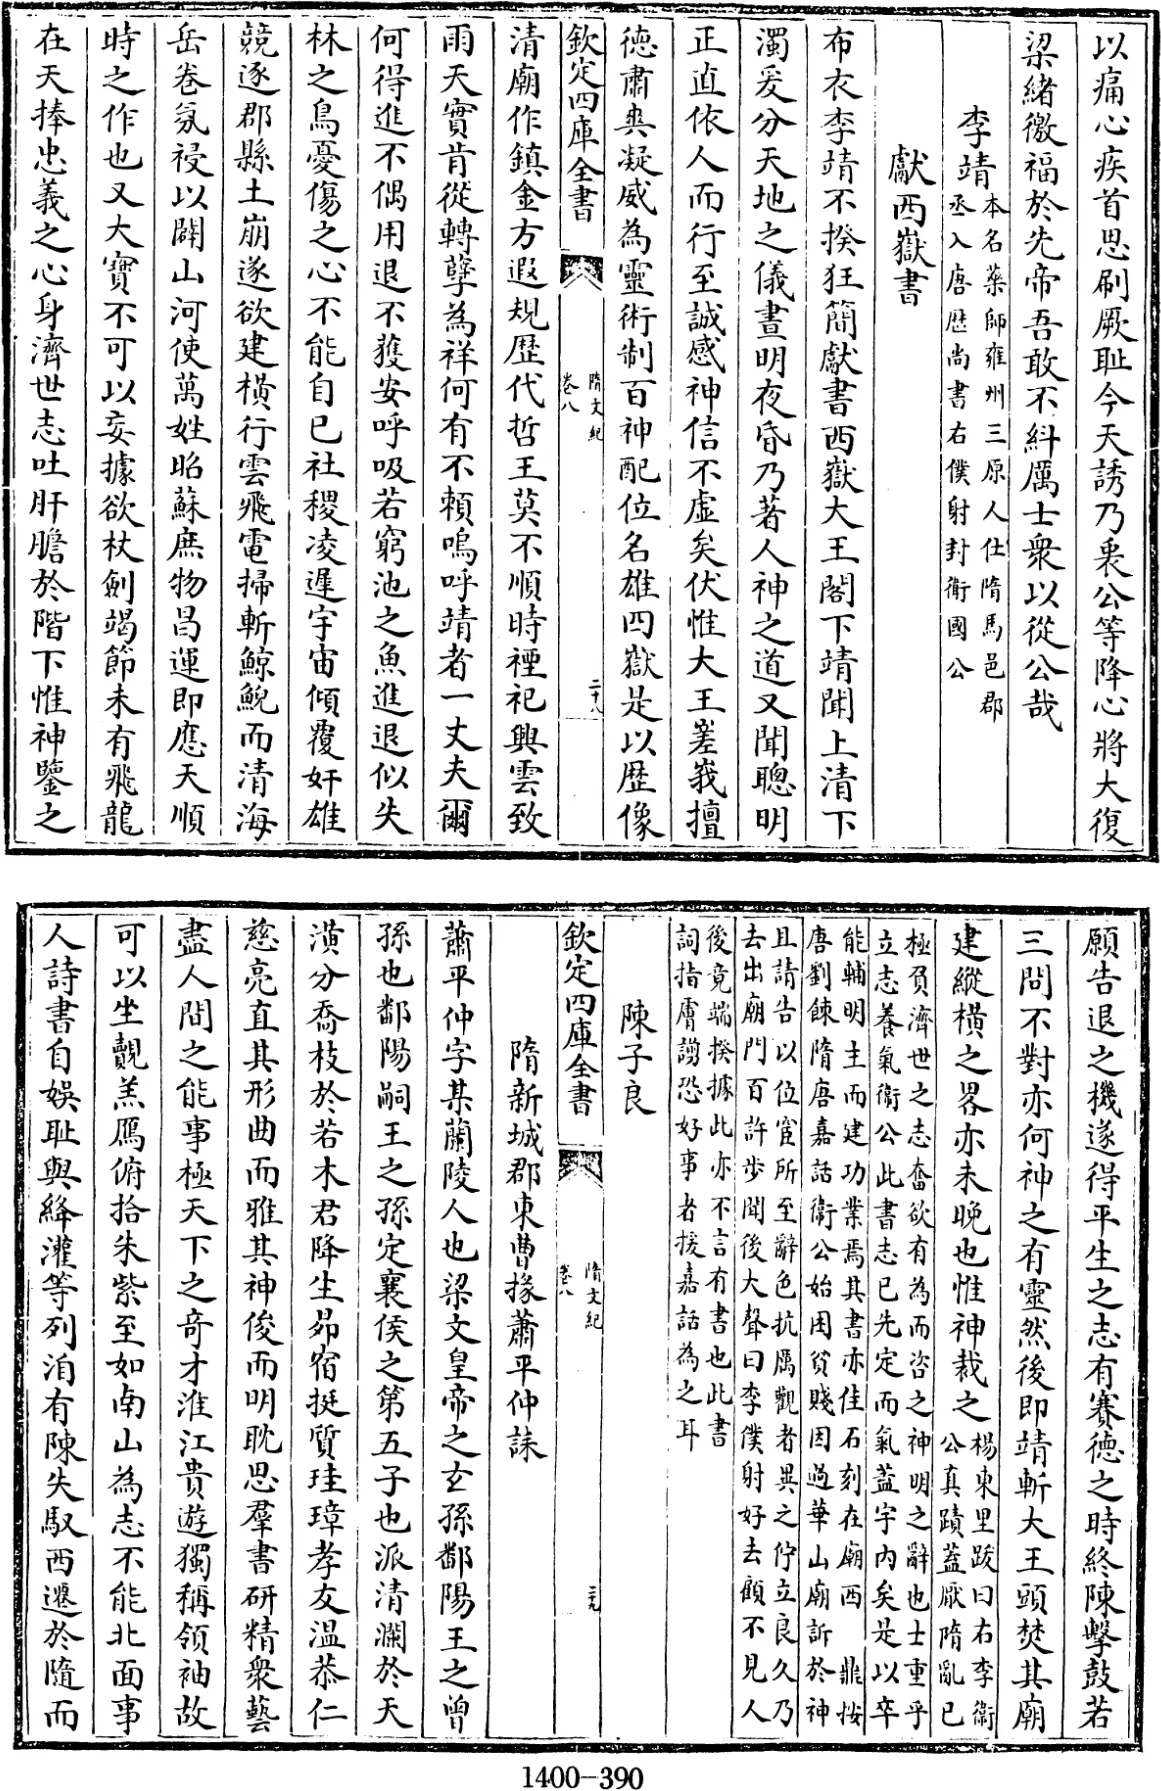 以痛心疾首思刷厥耻今天誘乃衷公等降心將大復
梁緒徼福於先帝吾敢不糾厲士衆以從公哉
李靖本名藥師雍州三原人仕隋馬邑郡
丞入唐歴尚書右僕射封衛國公
獻西嶽書
布衣李靖不揆狂簡獻書西嶽大王閣下靖聞上清下
濁爰分天地之儀晝明夜昏乃著人神之道又聞聰明
正直依人而行至誠感神信不虛矣伏惟大王嵳峩擅
德肅爽凝威為靈術制百神配位名雄四嶽是以歴像
欽定四庫全書
隋文紀
卷八
二十八
清廟作鎮金方遐規歴代哲王莫不順時禋祀興雲致
雨天實肯從轉孽為祥何有不賴嗚呼靖者一丈夫爾
何得進不偶用退不獲安呼吸若窮池之魚進退似失
林之鳥憂傷之心不能自已社稷凌遲宇宙傾覆奸雄
競逐郡縣土崩遂欲建橫行雲飛電掃斬鯨鯢而清海
岳卷氛祲以闢山河使萬姓昭蘇庶物昌運即應天順
時之作也又大寶不可以妄據欲杖劍竭節未有飛龍
在天捧忠義之心身濟世志吐肝膽於階下惟神鑒之
願告退之機遂得平生之志有賽德之時終陳擊鼓若
三問不對亦何神之有靈然後即靖斬大王頭焚其廟
建縱橫之畧亦未晚也惟神裁之楊東里跋曰右李衛
公真蹟蓋厭隋亂已
極負濟世之志奮欲有為而咨之神明之辭也士重乎
立志養氣衛公此書志已先定而氣蓋宇内矣是以卒
能輔明主而建功業焉其書亦佳石刻在廟西 鼎按
唐劉餗隋唐嘉話衛公始困貧賤因過華山廟訴於神
且請告以位宦所至辭色抗厲觀者異之佇立良久乃
去出廟門百許步聞後大聲曰李僕射好去顧不見人
後竟端揆據此亦不言有書也此書
詞指膚謭恐好事者援嘉話為之耳
陳子良
欽定四庫全書
隋文紀
卷八
二十九
隋新城郡東曹掾蕭平仲誄
蕭平仲字某蘭陵人也梁文皇帝之玄孫鄱陽王之曾
孫也鄱陽嗣王之孫定襄侯之第五子也派清瀾於天
潢分喬枝於若木君降生昴宿挺質珪璋孝友温恭仁
慈亮直其形曲而雅其神俊而明耽思羣書研精衆藝
盡人間之能事極天下之奇才淮江貴遊獨稱領袖故
可以坐覿羔鴈俯拾朱紫至如南山為志不能北面事
人詩書自娛耻與絳灌等列洎有陳失馭西遷於隨而
1400—390